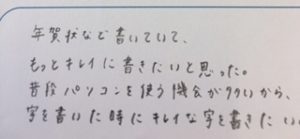 年賀状など書いていて、
もっとキレイに書きたいと思った。
普段パソコンを使う機会が多いから、
字を書いた時にキレイな字を書きたい